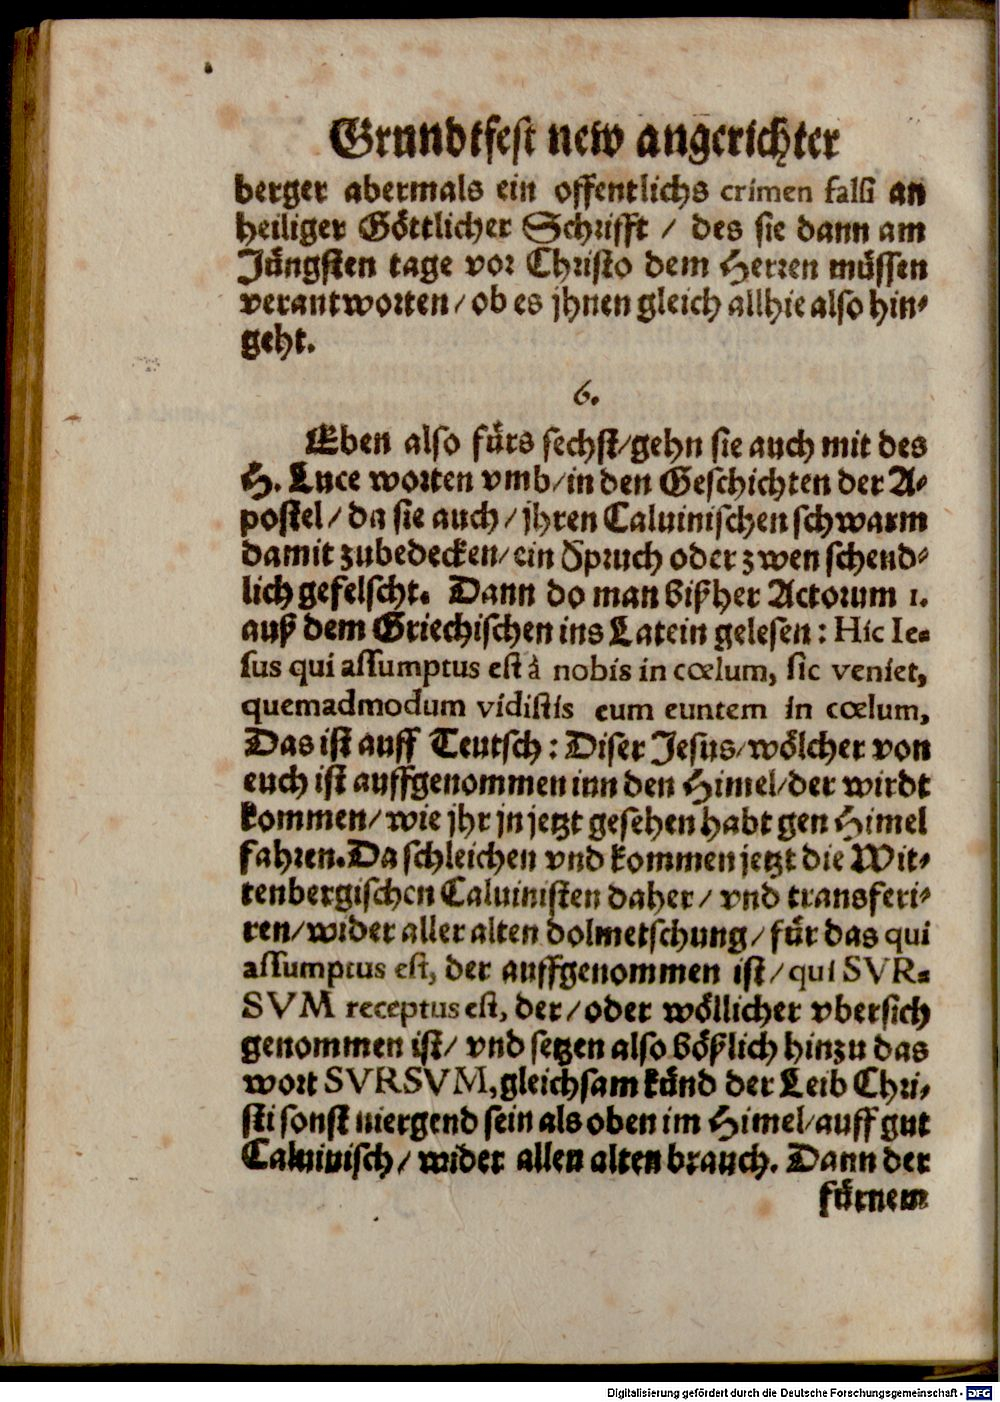 Grundtfest new angerichter
berger abermals ein offentlichs crimen falsi an
heiliger Göttlicher Schrifft / des sie dann am
Jüngsten tage vor Christo dem Herren müssen
verantworten / ob es jhnen gleich allhie also hin-
geht.
6.
Eben also fürs sechst / gehn sie auch mit des
H. Luce worten vmb / in den Geschichten der A-
postel / da sie auch / jhren Caluinischen schwarm
damit zubedecken / ein Spruch oder zwen schend-
lich gefelscht. Dann do man bißher Actorum 1.
auß dem Griechischen ins Latein gelesen: Hic Ie-
sus qui assumptus est à nobis in cœlum, sic veniet,
quemadmodum vidistis eum euntem in cœlum,
Das ist auff Teutsch: Diser Jesus / wölcher von
euch ist auffgenommen inn den Himel / der wirdt
kommen / wie jhr jn jetzt gesehen habt gen Himel
fahren. Da schleichen vnd kommen jetzt die Wit-
tenbergischen Caluinisten daher / vnd transferi-
ren / wider aller alten dolmetschung / für das qui
assumptus est, der auffgenommen ist / qui SVR-
SVM receptus est, der / oder wöllicher vbersich
genommen ist / vnd setzen also bößlich hinzu das
wort SVRSVM, gleichsam künd der Leib Chri-
sti sonst niergend sein als oben im Himel / auff gut
Caluinisch / wider allen alten brauch. Dann der
fürnem
Digitalisierung gefördert durch die Deutsche Forschungsgemeinschaft - DFG